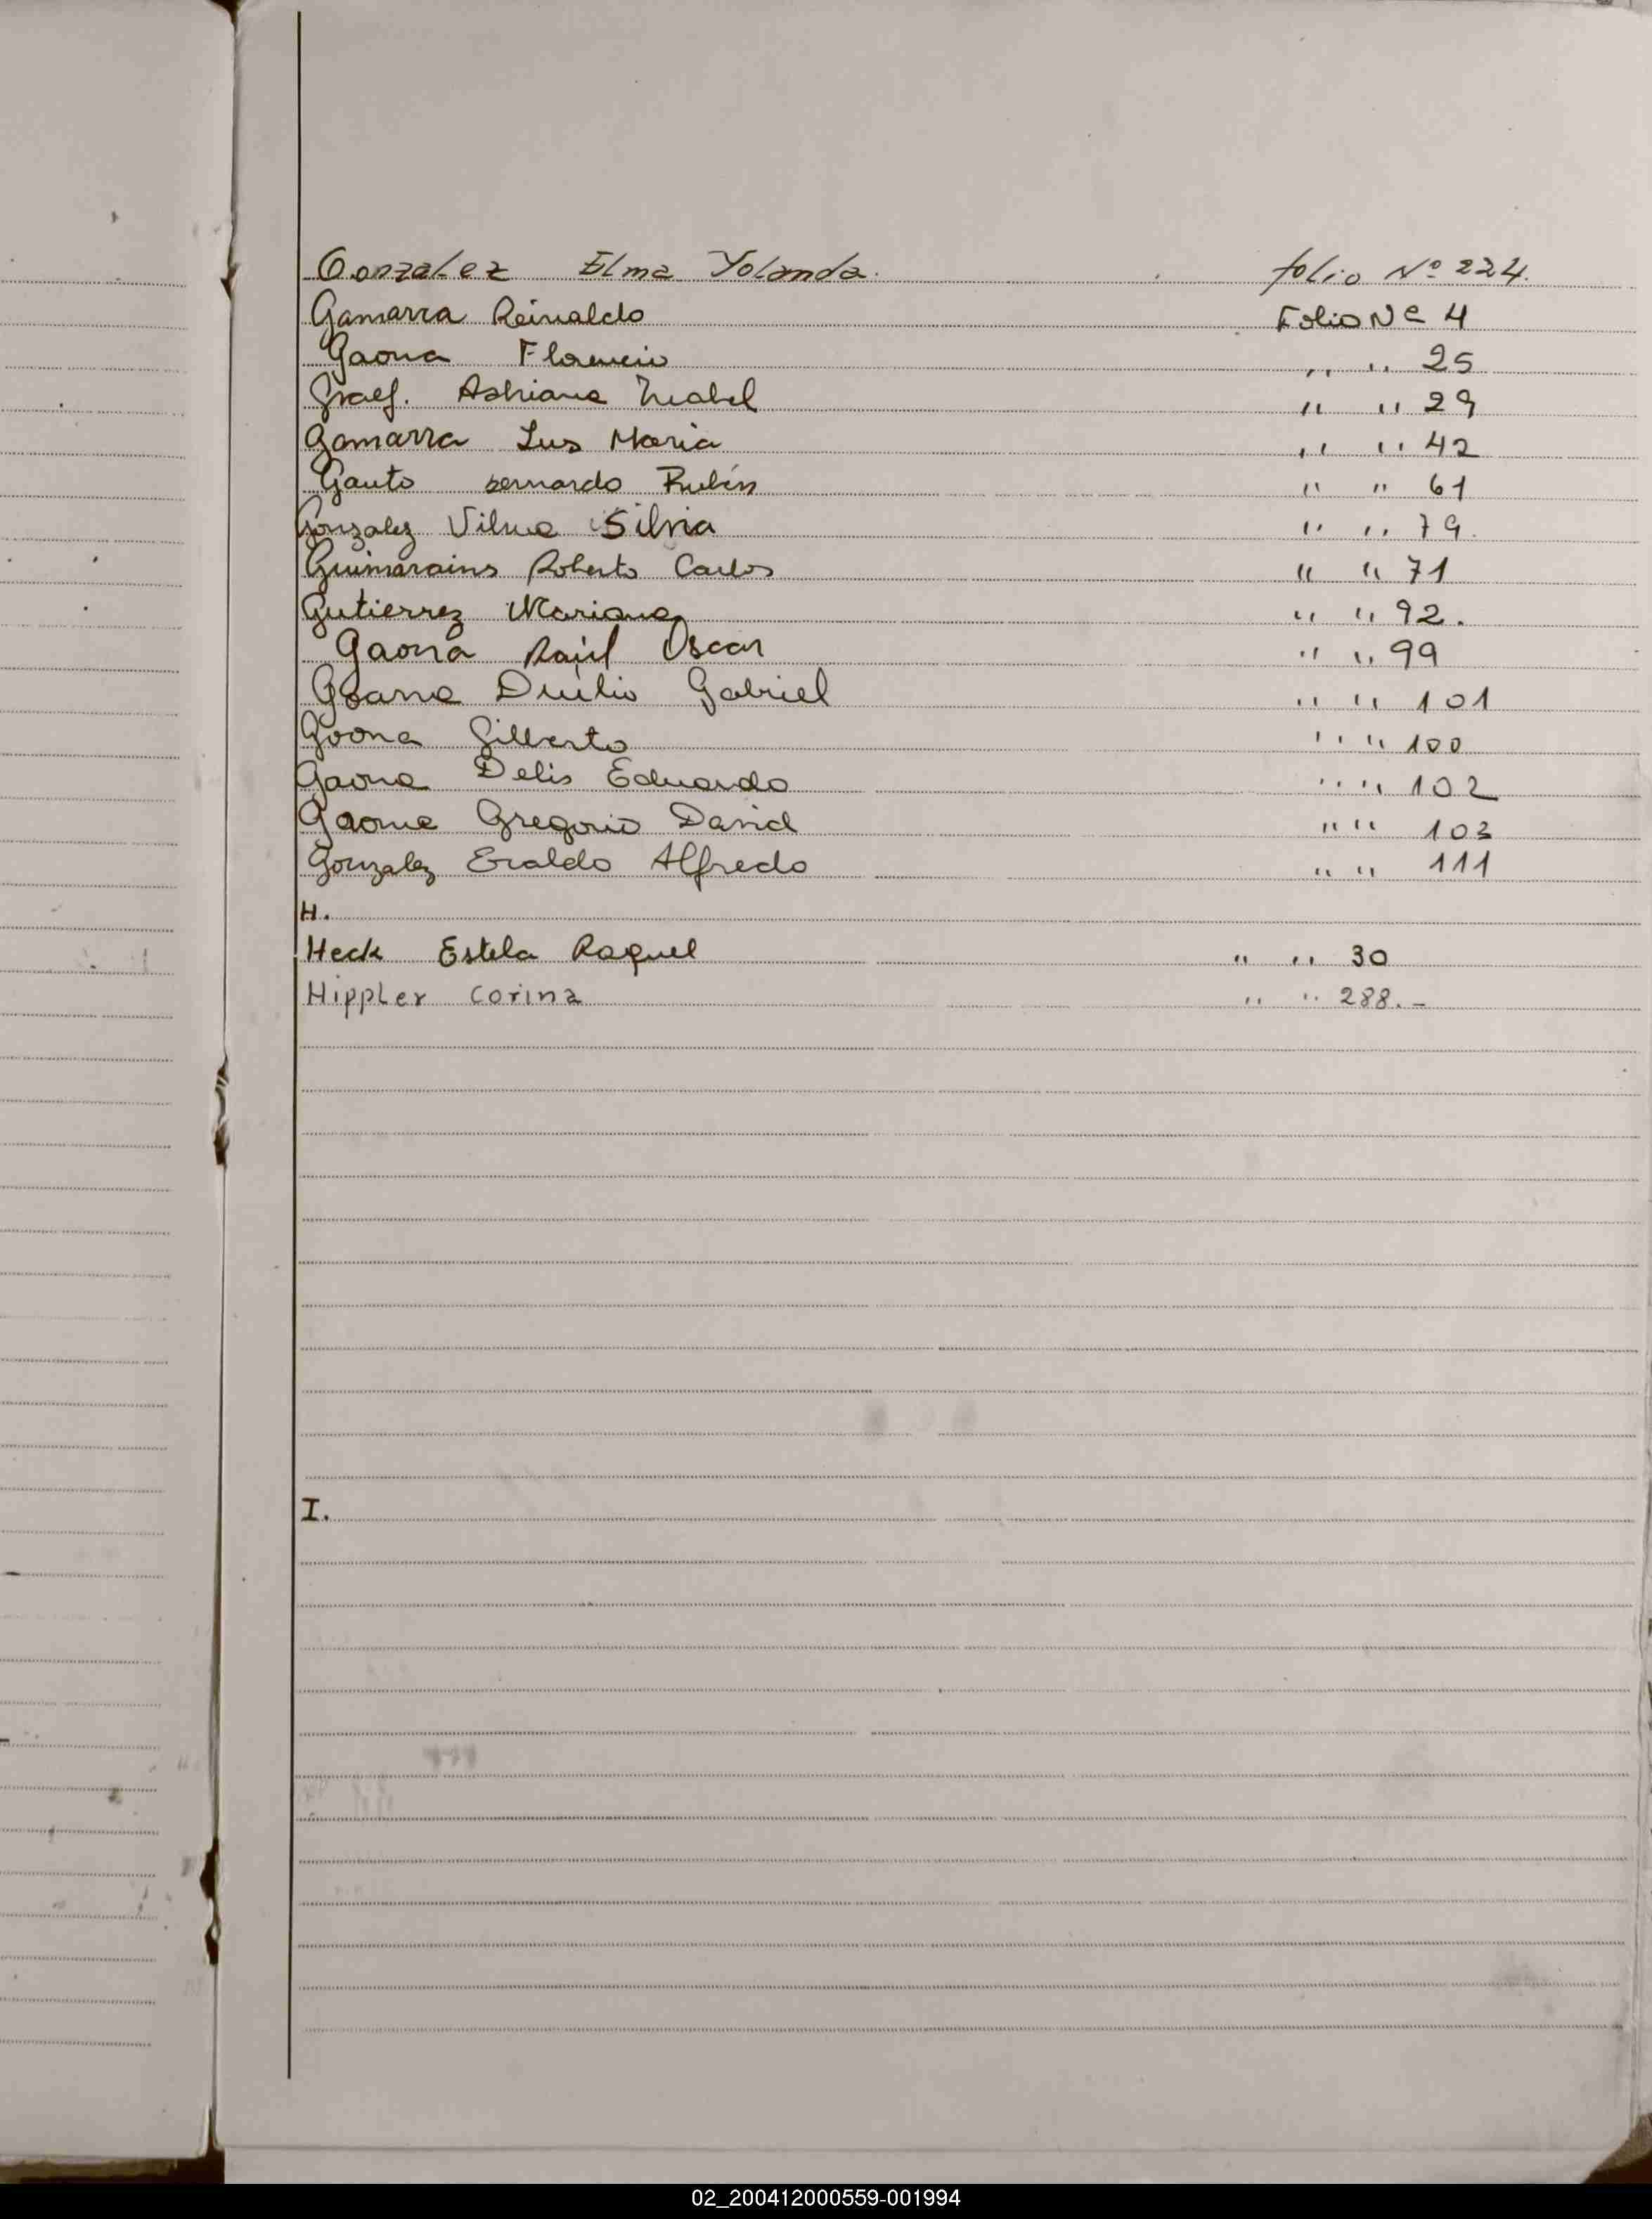 Gonzalez Elma Yolanda. folio Nº 224.
Gamarra Reinaldo Folio Nº 4
Gaona Florencio ,, ,, 25
Graef. Adriana Isabel ,, ,, 29
Gamarra Lus Maria ,, ,, 42
Gauto Bernardo Rubén ,, ,, 61
Gonzalez Vilma Silvia ,, ,, 79.
Guimarains Roberto Carlos ,, ,, 71
Gutierrez Mariana ,, ,, 92.
Gaona Raúl Oscar ,, ,, 99
Goana Duilio Gabriel ,, ,, 101
Goona Gilberto ,, ,, 100
Gaona Delis Eduardo ,, ,, 102
Gaona Gregorio David ,, ,, 103
Gonzalez Eraldo Alfredo ,, ,, 111
H.
Heck Estela Raquel ,, ,, 30
Hippler Corina ,, ,, 288.-
I.
02_200412000559-001994